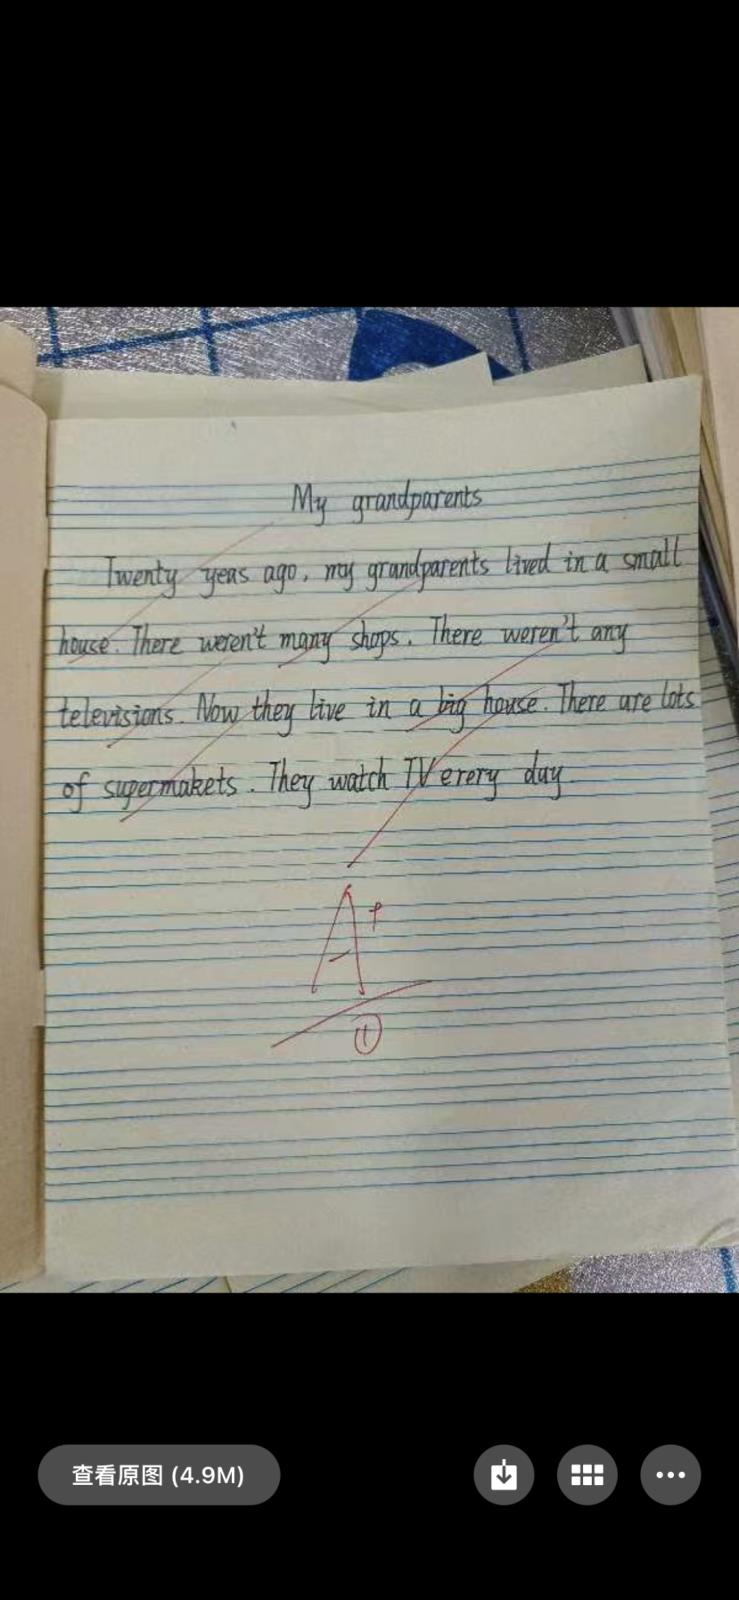 My grandparents
Twenty yeas ago, my grandparents lived in a small
house. There weren't many shops. There weren't any
televisions. Now they live in a big house. There are lots
of supermakets. They watch TV erery day
A+
①
查看原图 (4.9M)